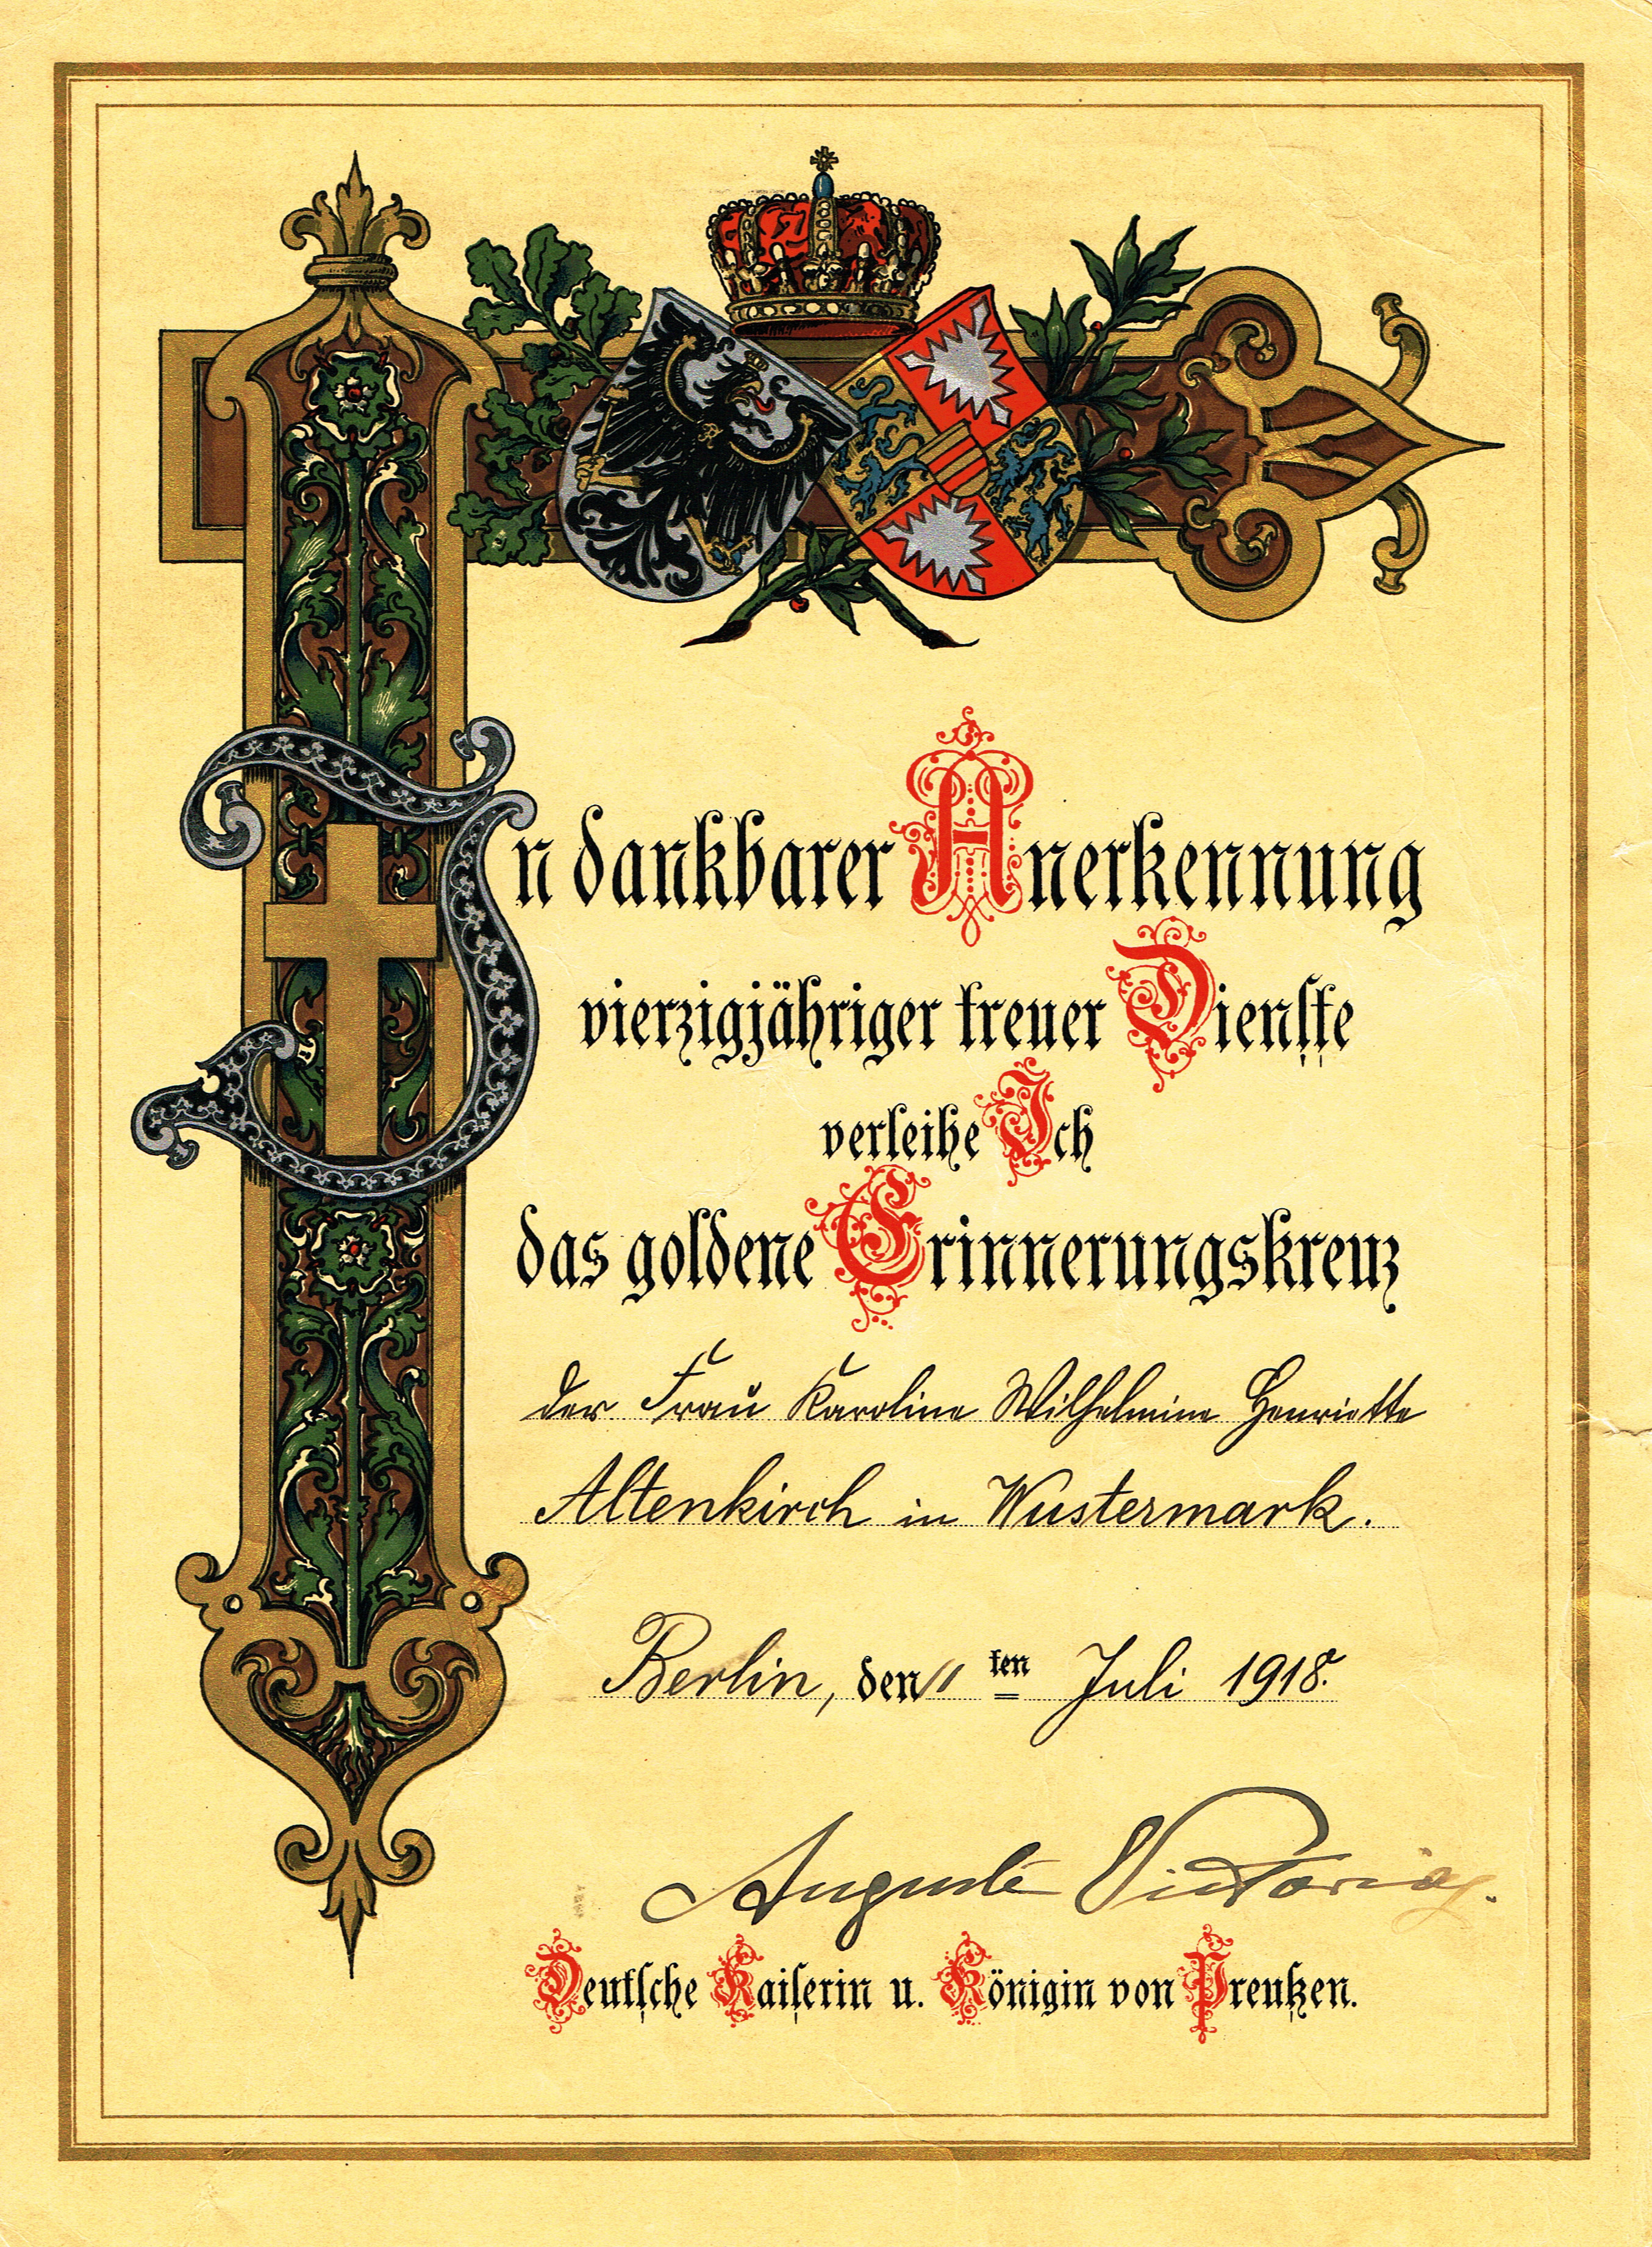 In dankbarer Anerkennung
vierzigjähriger treuer Dienste
verleihe Ich
das goldene Erinnerungskreuz
der Frau Karoline Wilhelmine Henriette
Altenkirch in Wustermark.
Berlin, den 11ten Juli 1918.
Auguste Victoria
Deutsche Kaiserin u. Königin von Preußen.